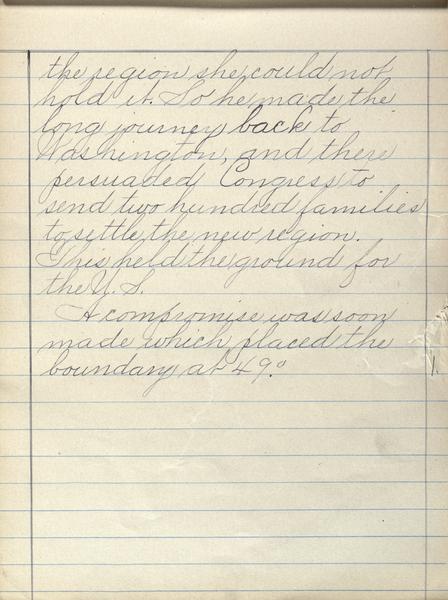 the region she could not
hold it. So he made the
long journey back to
Washington, and there
persuaded Congress to
send two hundred families
to settle the new region.
This held the ground for
the U. S.
A compromise was soon
made which placed the
boundary at 49°.